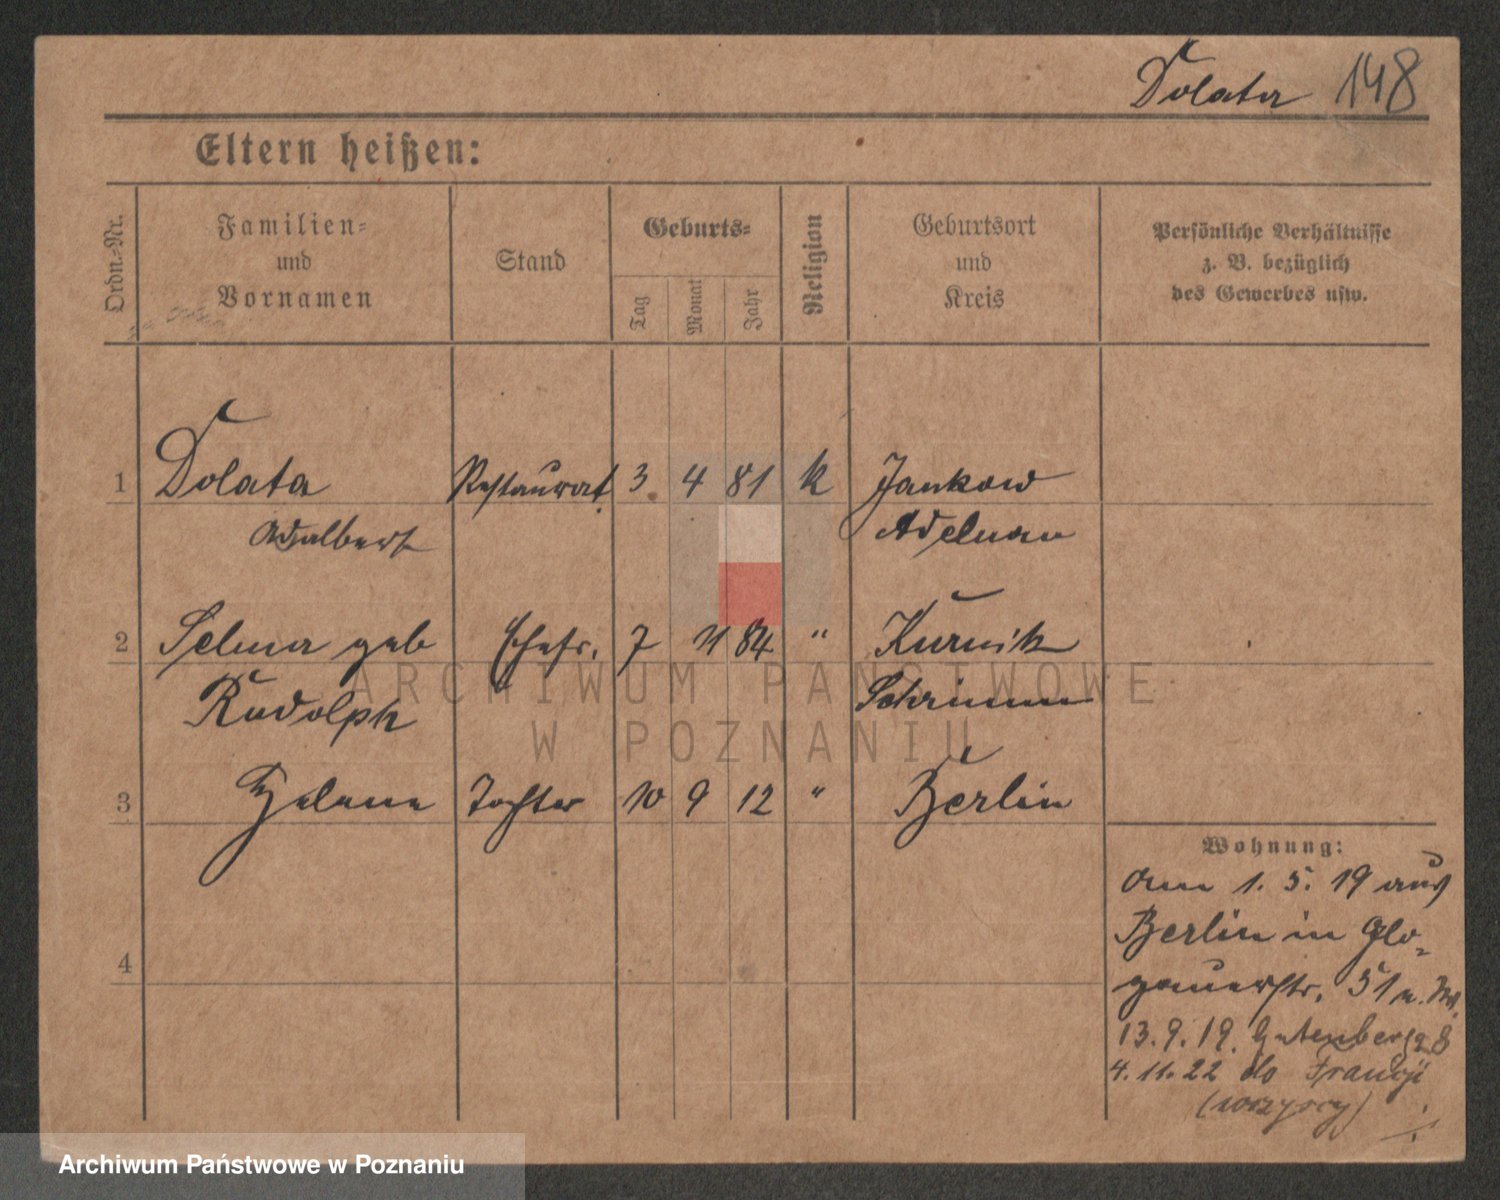 Dolata 148
Eltern heißen:
Ordn.-Nr.
Familien-
und
Vornamen
Stand
Geburts-
Tag
Monat
Jahr
Religion
Geburtsort
und
Kreis
Persönliche Verhältnisse
z. B. bezüglich
des Gewerbes usw.
1 Dolata Restaurat. 3. 4 81 k Jankow
Adalbert Adelnau
2 Selma geb Ehefr. 7 11 84 " Kurnik
Rudolph Schrimm
3 Helene Tochter 10 9 12 " Berlin
4
Wohnung:
am 1. 5. 19 aus
Berlin in Glo-
gauerstr. 51
13. 9. 19. Gutenberga 8
4. 11. 22 do Francji
(wszyscy)
ARCHIWUM PAŃSTWOWE
W POZNANIU
Archiwum Państwowe w Poznaniu